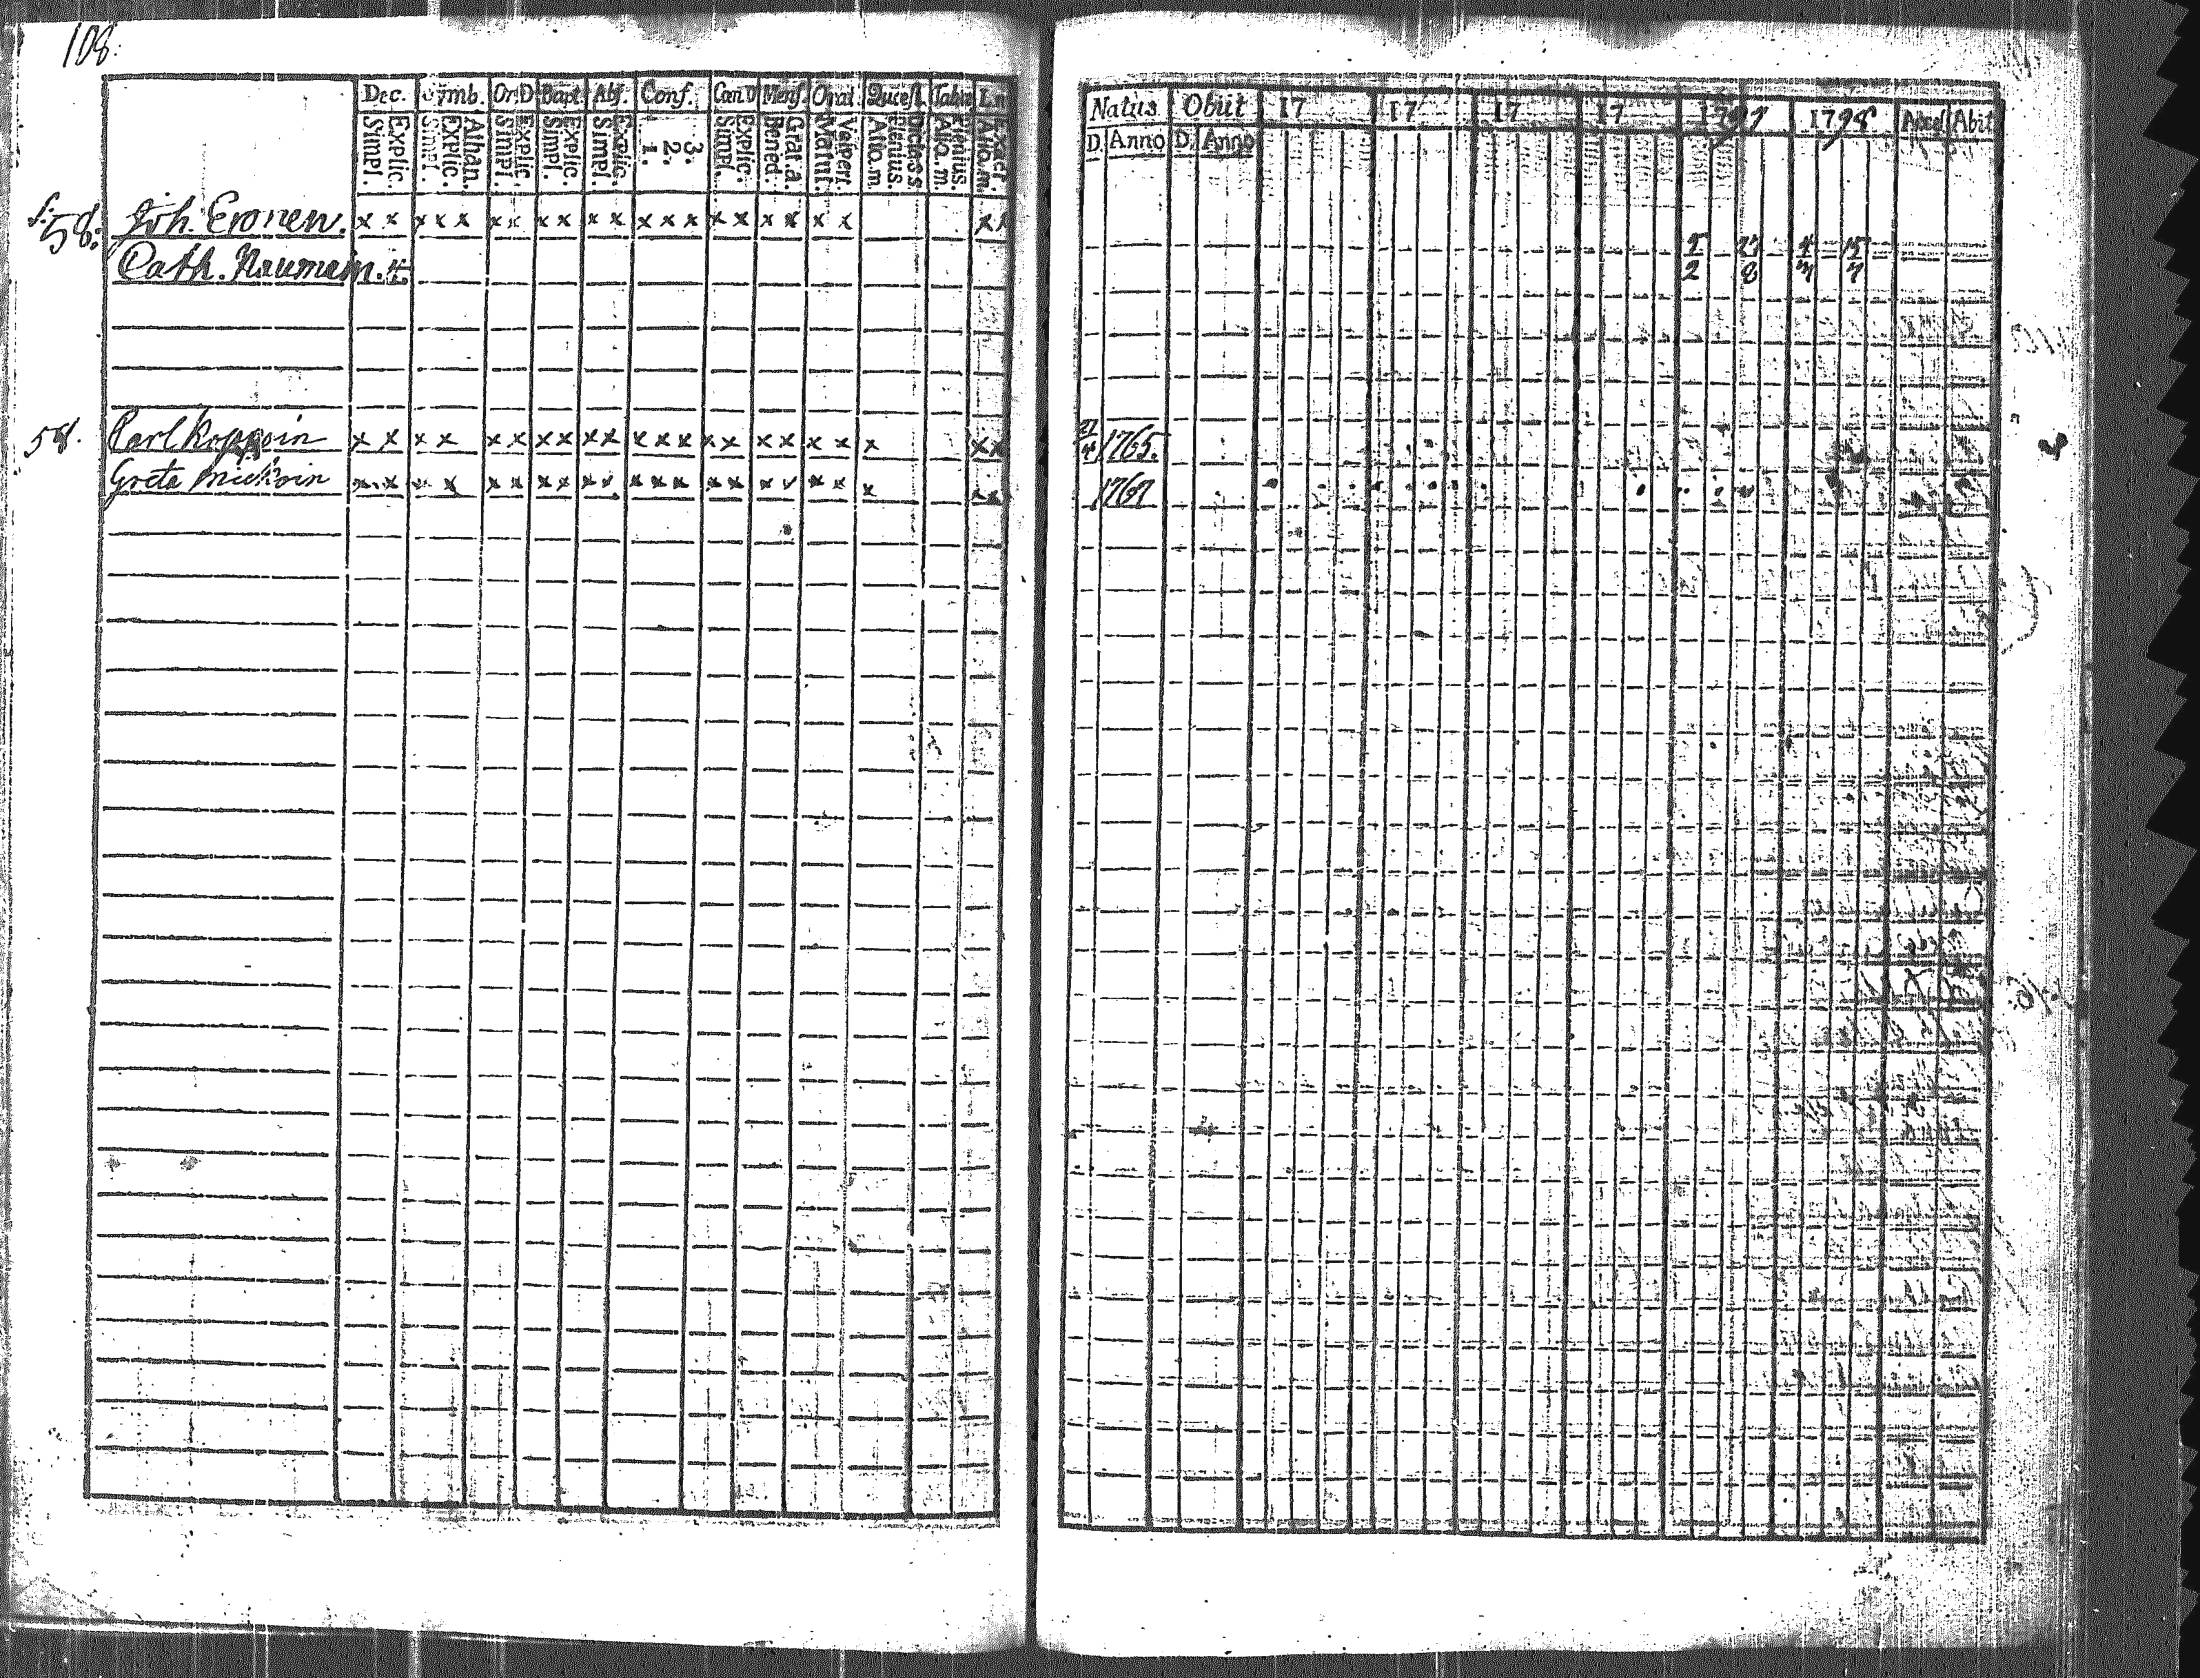 108.
Dec. Symb. Or. D Bapt. Abs. Conf. Cœn D Mens. Orat. Quæst. Tabb
Simpl. Explic. Simpl. Explic. Athan. Simpl. Explic. Simpl. Explic. Simpl. Explic. 1. 2. 3. Simpl. Explic. Bened. Grat. a. Matut. Vespert. Aliq. m. Plenius. Aliq. m. Plenius. Aliq. m.
58. Joh. Eronen. x x x x x x x x x x x x x x x x x x x x x
Cath. Naumain.
58. Carl Koppoin x x x x x x x x x x x x x x x x x x x x x
Greta x x x x x x x x x x x x x x x x x x x x x
Natus Obiit 17 17 17 17 1797 1798 Acces Abit
D. Anno D. Anno
5/2 4/7 15/7
1765.
1767